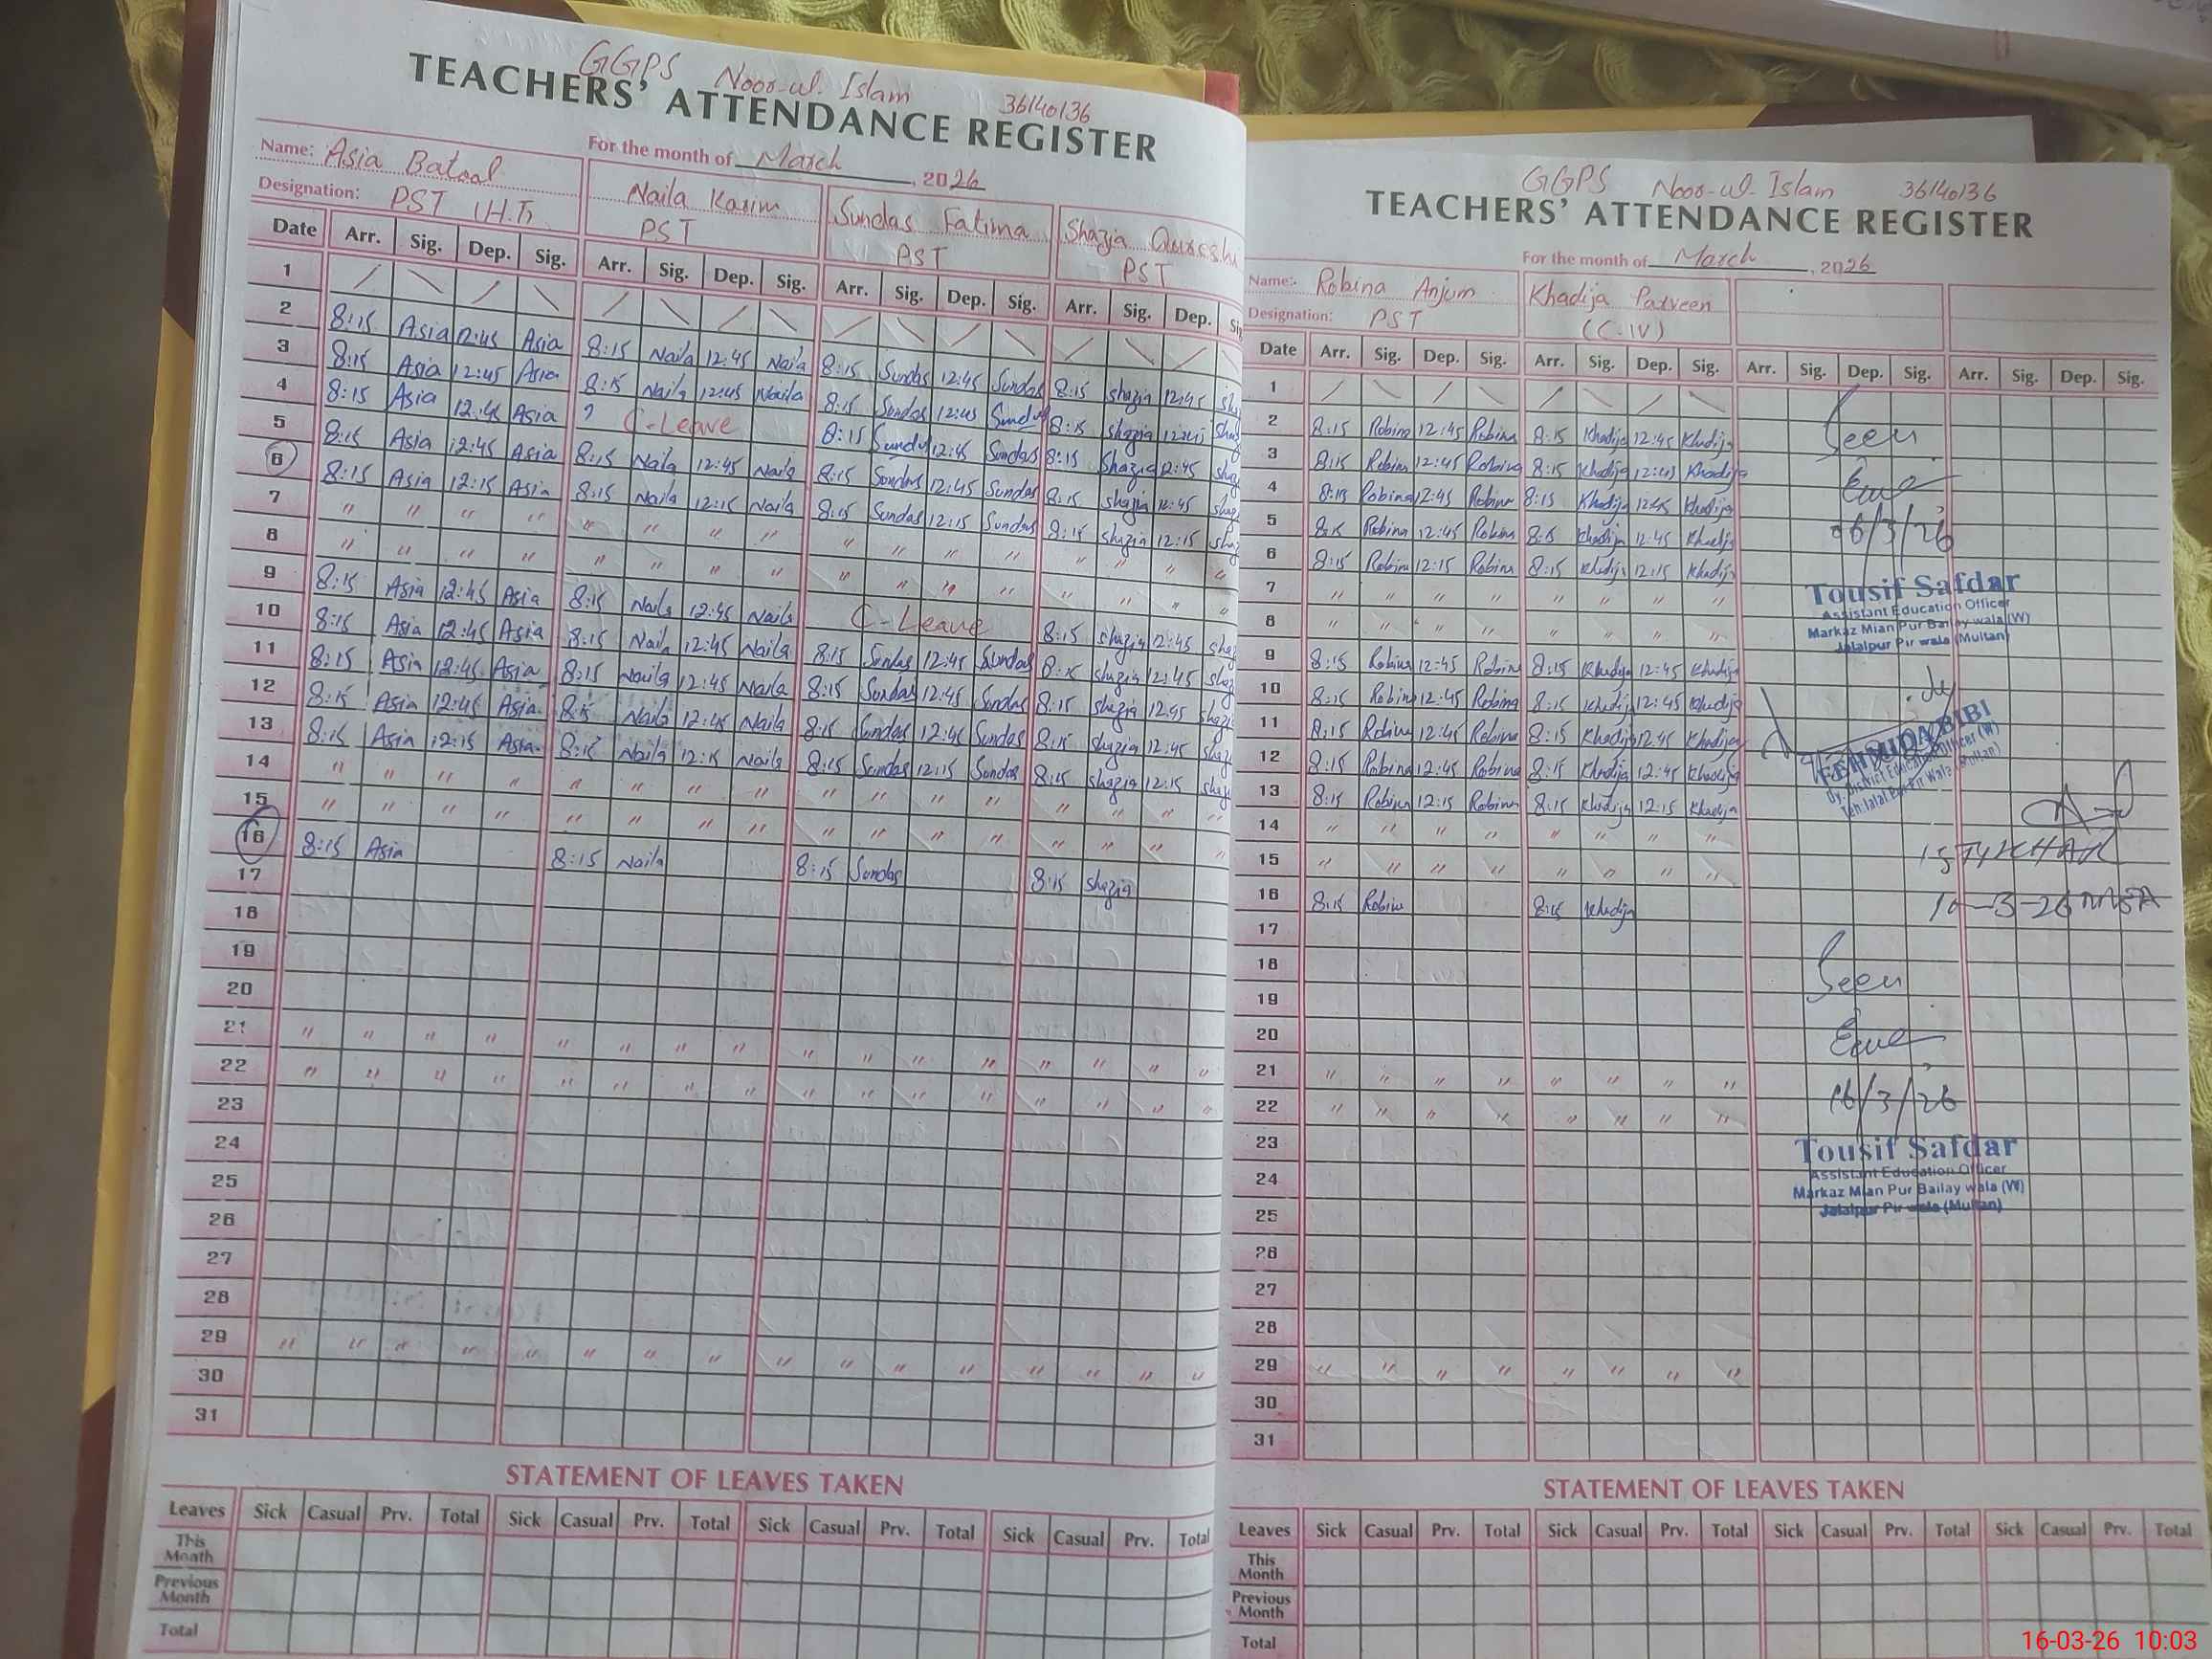 GGPS Noor-ul-Islam 36140136
TEACHERS' ATTENDANCE REGISTER
For the month of March, 2026
Name: Asia Batool Naila Karim Sundas Fatima Shazia Qureshi
Designation: PST (H.T) PST PST PST
Date Arr. Sig. Dep. Sig. Arr. Sig. Dep. Sig. Arr. Sig. Dep. Sig. Arr. Sig. Dep.
1 / \ / \ / \ / \ / \ / \ / \ / \
2 8:15 Asia 12:45 Asia 8:15 Naila 12:45 Naila 8:15 Sundas 12:45 Sundas 8:15 shazia 12:45
3 8:15 Asia 12:45 Asia 8:15 Naila 12:45 Naila 8:15 Sundas 12:45 8:15 shazia 12:45
4 8:15 Asia 12:45 Asia C-Leave 8:15 12:45 Sundas 8:15 Shazia 12:45
5 8:15 Asia 12:45 Asia 8:15 Naila 12:45 Naila 8:15 Sundas 12:45 Sundas 8:15 shazia 12:45
6 8:15 Asia 12:15 Asia 8:15 Naila 12:15 Naila 8:15 Sundas 12:15 Sundas 8:15 shazia 12:15
7 " " " " " " " " " " " " " " "
8 " " " " " " " " " " " " " " "
9 8:15 Asia 12:45 Asia 8:15 Naila 12:45 Naila C-Leave 8:15 shazia 12:45
10 8:15 Asia 12:45 Asia 8:15 Naila 12:45 Naila 8:15 Sundas 12:45 Sundas 8:15 shazia 12:45
11 8:15 Asia 12:45 Asia 8:15 Naila 12:45 Naila 8:15 Sundas 12:45 Sundas 8:15 shazia 12:45
12 8:15 Asia 12:45 Asia 8:15 Naila 12:45 Naila 8:15 Sundas 12:45 Sundas 8:15 shazia 12:45
13 8:15 Asia 12:15 Asia 8:15 Naila 12:15 Naila 8:15 Sundas 12:15 Sundas 8:15 shazia 12:15
14 " " " " " " " " " " " " " " "
15 " " " " " " " " " " " " " " "
16 8:15 Asia 8:15 Naila 8:15 Sundas 8:15 shazia
17
18
19
20
21 " " " " " " " " " " " " " " "
22 " " " " " " " " " " " " " " "
23
24
25
26
27
28
29 " " " " " " " " " " " " " " "
30
31
STATEMENT OF LEAVES TAKEN
Leaves Sick Casual Prv. Total Sick Casual Prv. Total Sick Casual Prv. Total Sick Casual Prv. Total
This Month
Previous Month
Total
GGPS Noor-ul-Islam 36140136
TEACHERS' ATTENDANCE REGISTER
For the month of March, 2026
Name: Robina Anjum Khadija Parveen
Designation: PST (C.IV)
Date Arr. Sig. Dep. Sig. Arr. Sig. Dep. Sig. Arr. Sig. Dep. Sig. Arr. Sig. Dep. Sig.
1 / \ / \ / \ / \
2 8:15 Robina 12:45 Robina 8:15 Khadija 12:45 Khadija
3 8:15 Robina 12:45 Robina 8:15 Khadija 12:45 Khadija
4 8:15 Robina 12:45 Robina 8:15 Khadija 12:45 Khadija
5 8:15 Robina 12:45 Robina 8:15 Khadija 12:45 Khadija
6 8:15 Robina 12:15 Robina 8:15 Khadija 12:15 Khadija
7 " " " " " " " "
8 " " " " " " " "
9 8:15 Robina 12:45 Robina 8:15 Khadija 12:45 Khadija
10 8:15 Robina 12:45 Robina 8:15 Khadija 12:45 Khadija
11 8:15 Robina 12:45 Robina 8:15 Khadija 12:45 Khadija
12 8:15 Robina 12:45 Robina 8:15 Khadija 12:45 Khadija
13 8:15 Robina 12:15 Robina 8:15 Khadija 12:15 Khadija
14 " " " " " " " "
15 " " " " " " " "
16 8:15 Robina 8:15 Khadija
17
18
19
20
21 " " " " " " " "
22 " " " " " " " "
23
24
25
26
27
28
29 " " " " " " " "
30
31
Seen
06/3/26
Tousif Safdar
Assistant Education Officer
Markaz Mian Pur Bailay wala (W)
Jalalpur Pir wala (Multan)
BIBI
Dy. District Education Officer (W)
Teh: Jalal Pur Pir Wala (Multan)
10-3-26
Seen
16/3/26
Tousif Safdar
Assistant Education Officer
Markaz Mian Pur Bailay wala (W)
Jalalpur Pir wala (Multan)
STATEMENT OF LEAVES TAKEN
Leaves Sick Casual Prv. Total Sick Casual Prv. Total Sick Casual Prv. Total Sick Casual Prv. Total
This Month
Previous Month
Total
16-03-26 10:03